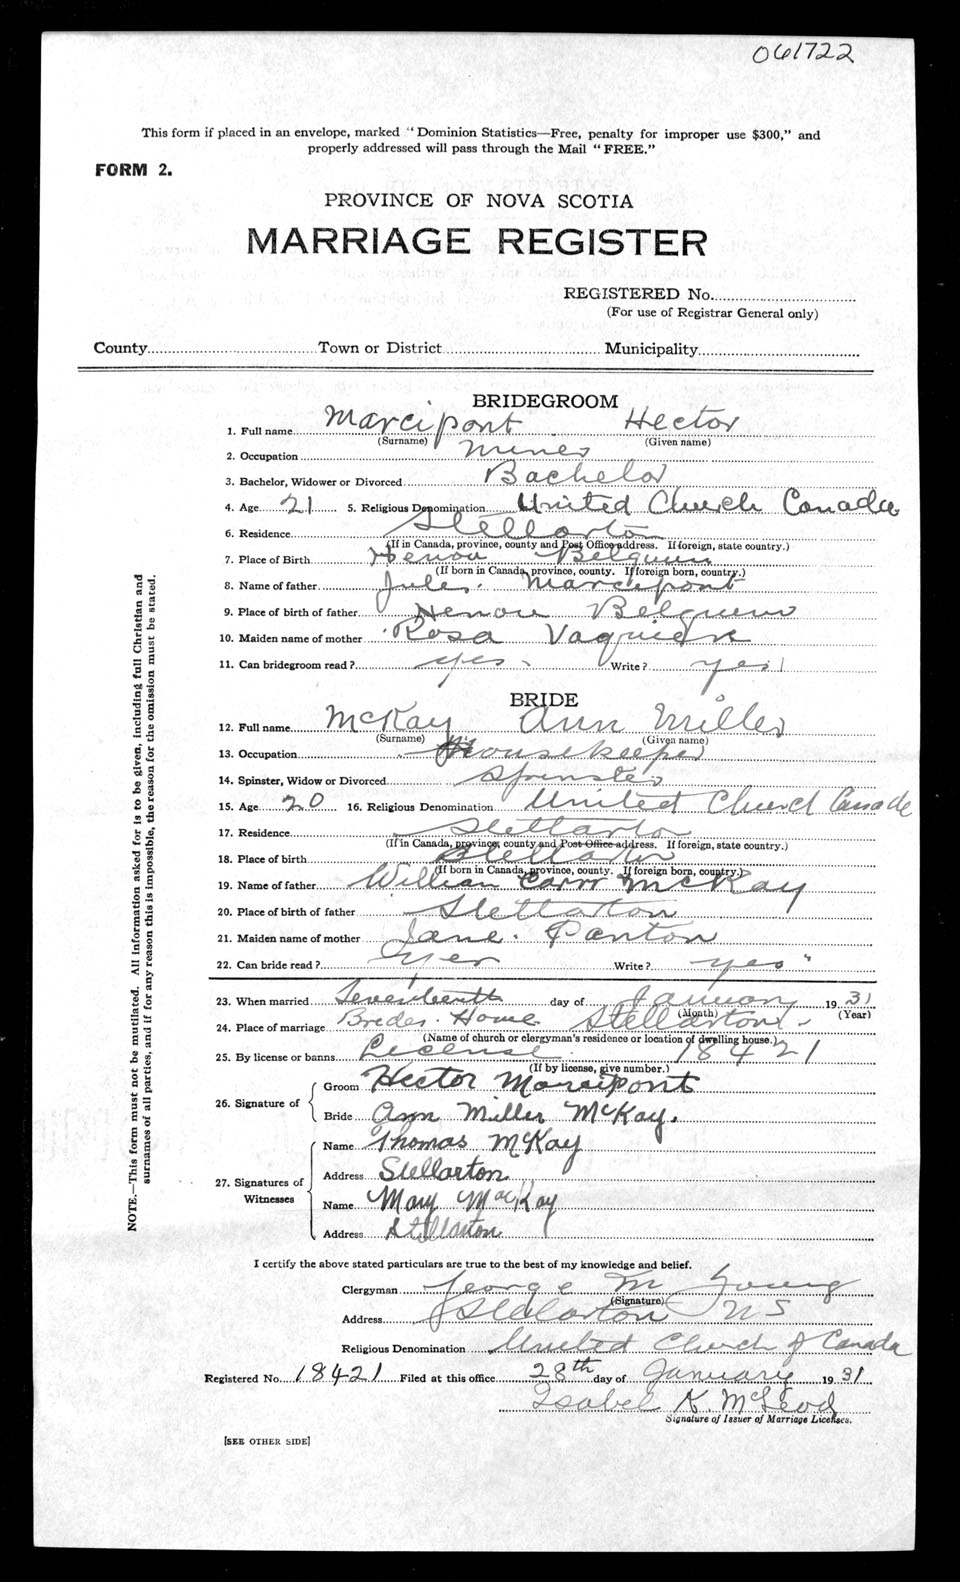 061722
This form if placed in an envelope, marked "Dominion Statistics—Free, penalty for improper use $300," and
properly addressed will pass through the Mail "FREE."
FORM 2.
PROVINCE OF NOVA SCOTIA
MARRIAGE REGISTER
REGISTERED No.
(For use of Registrar General only)
County Town or District Municipality
BRIDEGROOM
1. Full name Marcipont Hector
(Surname) (Given name)
2. Occupation Miner
3. Bachelor, Widower or Divorced Bachelor
4. Age 21 5. Religious Denomination United Church Canada
6. Residence Stellarton
(If in Canada, province, county and Post Office address. If foreign, state country.)
7. Place of Birth Henou Belguim
(If born in Canada, province, county. If foreign born, country.)
8. Name of father Jules Marcipont
9. Place of birth of father Henou Belguim
10. Maiden name of mother Rosa
11. Can bridegroom read? yes Write? yes
BRIDE
12. Full name McKay Ann Miller
(Surname) (Given name)
13. Occupation Housekeeper
14. Spinster, Widow or Divorced Spinster
15. Age 20 16. Religious Denomination United Church Canada
17. Residence Stellarton
(If in Canada, province, county and Post Office address. If foreign, state country.)
18. Place of birth Stellarton
(If born in Canada, province, county. If foreign born, country.)
19. Name of father William Carr McKay
20. Place of birth of father Stellarton
21. Maiden name of mother Jane Panton
22. Can bride read? yes Write? yes
23. When married Seventeenth day of January 1931
(Month) (Year)
24. Place of marriage Brides Home Stellarton
(Name of church or clergyman's residence or location of dwelling house.)
25. By license or banns License 18421
(If by license, give number.)
26. Signature of
Groom Hector Marcipont
Bride Ann Miller McKay.
27. Signatures of Witnesses
Name Thomas McKay
Address Stellarton
Name Mary MacKay
Address Stellarton
I certify the above stated particulars are true to the best of my knowledge and belief.
Clergyman George M Young
(Signature)
Address Stellarton N S
Religious Denomination United Church of Canada
Registered No. 18421 Filed at this office 28th day of January 1931
Isabel K. McLeod
Signature of Issuer of Marriage Licenses.
[SEE OTHER SIDE]
NOTE.—This form must not be mutilated. All information asked for is to be given, including full Christian and
surnames of all parties, and if for any reason this is impossible, the reason for the omission must be stated.